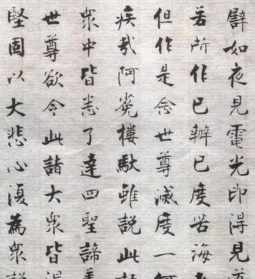 譬如夜見電光即得見
若所作已辦已度苦海
但作是念世尊滅度一
疾哉阿㝹樓馱雖說此
眾中皆悉了達四聖諦
世尊欲令此諸大眾皆得
堅固以大悲心復為眾說